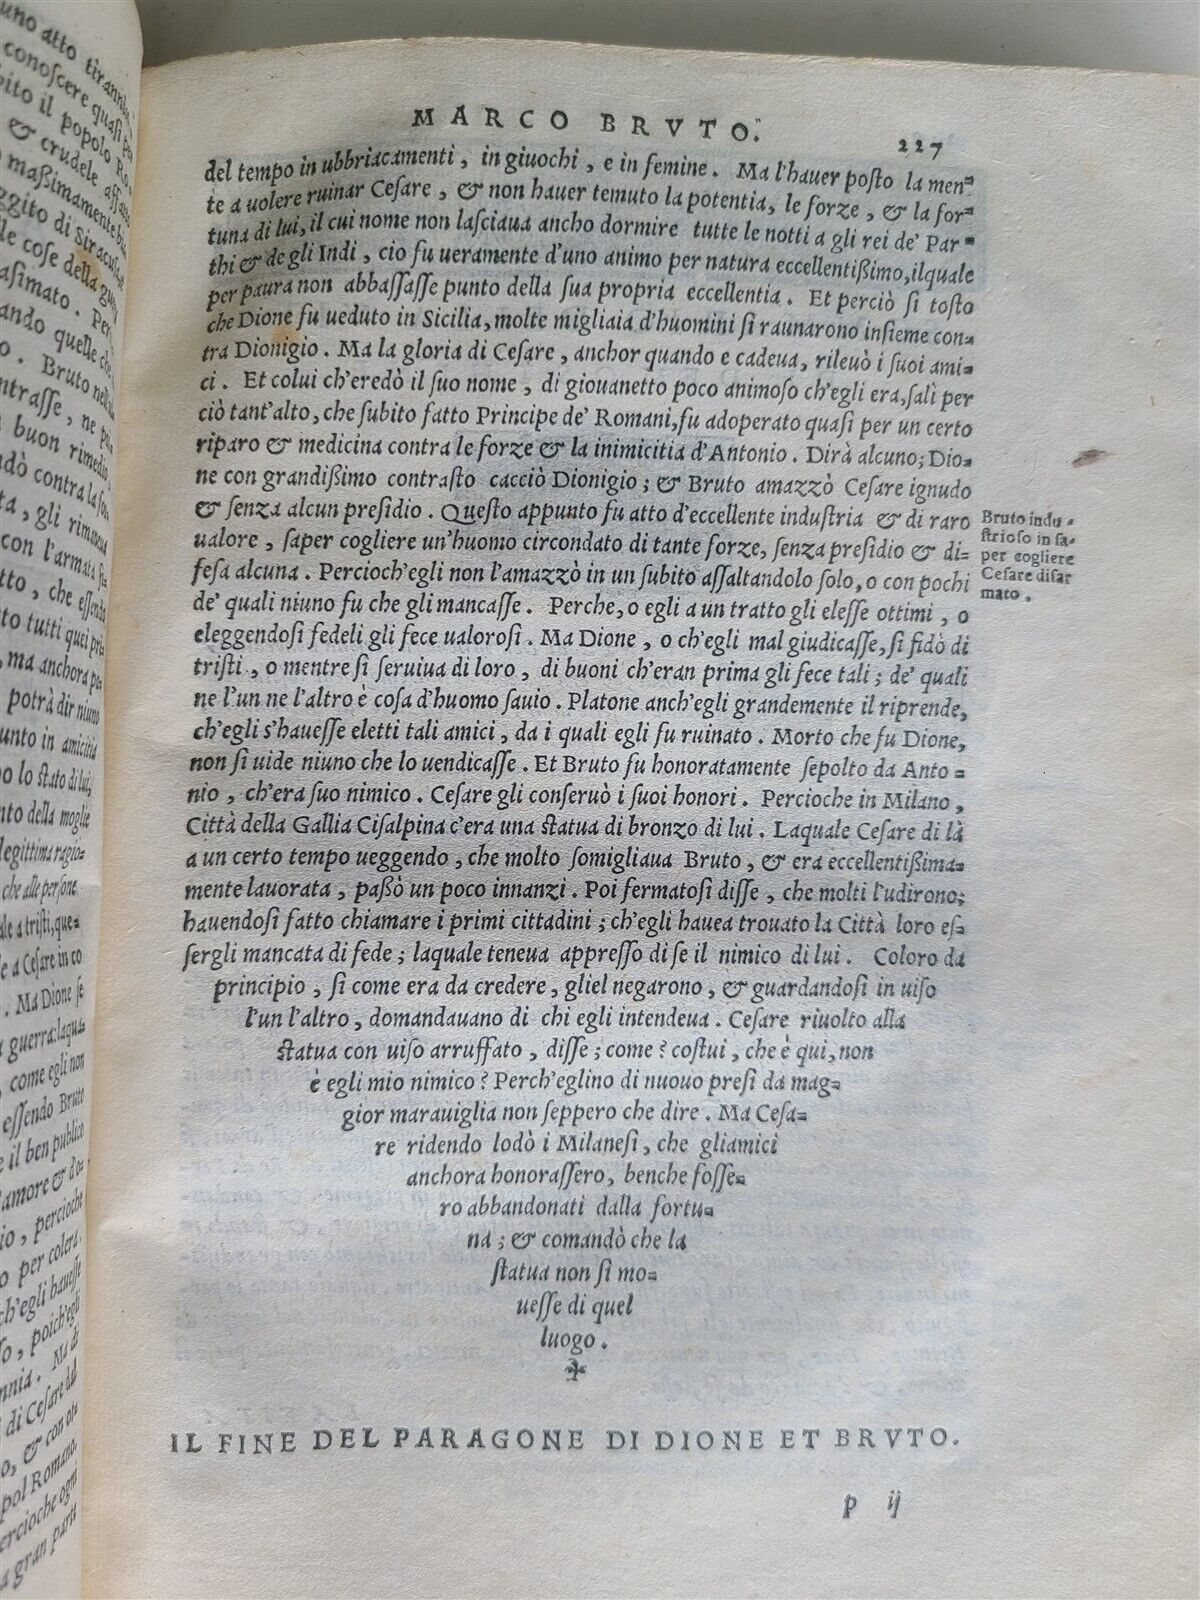 uno atto tirannic
conoſcere quaſi per
bito il popolo Ro-
& crudele aſſatto
maßimamente
ggito di Siracuſa
le coſe della guer
aſimato. Per
ando quelle che
o. Bruto nell'al
ntraſſe, ne più
buon rimedio
ndò contra la for
ta, gli rimanea
con l'armata ſi-
tto, che eſſendo
to tutti quei pri-
, ma anchora po-
potrà dir niuno
unto in amicitia
po lo ſtato di lui,
nto della moglie
legittima ragio-
che alle perſone
ale a triſti, que-
e a Ceſare in co
. Ma Dione ſe
guerra: laqua-
, come egli non
eſſendo Bruto
e il ben publico
'amore & do-
io, percioche
o per colera.
ch'egli haueſſe
ſo, poich'egli
nnia. Ma di
di Ceſare dal
o, & con ot-
pol Romano.
ercioche ogni
a gran parte
MARCO BRVTO. 227
del tempo in ubbriacamenti, in giuochi, e in femine. Ma l'hauer poſto la men-
te a uolere ruinar Ceſare, & non hauer temuto la potentia, le forze, & la for-
tuna di lui, il cui nome non laſciaua ancho dormire tutte le notti a gli rei de' Par-
thi & de gli Indi, cio fu ueramente d'uno animo per natura eccellentißimo, ilquale
per paura non abbaſſaſſe punto della ſua propria eccellentia. Et perciò ſi toſto
che Dione fu ueduto in Sicilia, molte migliaia d'huomini ſi raunarono inſieme con-
tra Dionigio. Ma la gloria di Ceſare, anchor quando e cadeua, rileuò i ſuoi ami-
ci. Et colui ch'eredò il ſuo nome, di giouanetto poco animoſo ch'egli era, ſalì per
ciò tant'alto, che ſubito fatto Principe de' Romani, fu adoperato quaſi per un certo
riparo & medicina contra le forze & la inimicitia d'Antonio. Dirà alcuno; Dio-
ne con grandißimo contraſto cacciò Dionigio; & Bruto amazzò Ceſare ignudo
& ſenza alcun preſidio. Queſto appunto fu atto d'eccellente induſtria & di raro
ualore, ſaper cogliere un'huomo circondato di tante forze, ſenza preſidio & di-
feſa alcuna. Percioch'egli non l'amazzò in un ſubito aſſaltandolo ſolo, o con pochi
de' quali niuno fu che gli mancaſſe. Perche, o egli a un tratto gli eleſſe ottimi, o
eleggendoſi fedeli gli fece ualoroſi. Ma Dione, o ch'egli mal giudicaſſe, ſi fidò di
triſti, o mentre ſi ſeruiua di loro, di buoni ch'eran prima gli fece tali; de' quali
ne l'un ne l'altro è coſa d'huomo ſauio. Platone anch'egli grandemente il riprende,
ch'egli s'haueſſe eletti tali amici, da i quali egli fu ruinato. Morto che fu Dione,
non ſi uide niuno che lo uendicaſſe. Et Bruto fu honoratamente ſepolto da Anto-
nio, ch'era ſuo nimico. Ceſare gli conſeruò i ſuoi honori. Percioche in Milano,
Città della Gallia Ciſalpina c'era una ſtatua di bronzo di lui. Laquale Ceſare di là
a un certo tempo ueggendo, che molto ſomigliaua Bruto, & era eccellentißima-
mente lauorata, paßò un poco innanzi. Poi fermatoſi diſſe, che molti l'udirono;
hauendoſi fatto chiamare i primi cittadini; ch'egli hauea trouato la Città loro eſ-
ſergli mancata di fede; laquale teneua appreſſo di ſe il nimico di lui. Coloro da
principio, ſi come era da credere, gliel negarono, & guardandoſi in uiſo
l'un l'altro, domandauano di chi egli intendeua. Ceſare riuolto alla
ſtatua con uiſo arruffato, diſſe; come? coſtui, che è qui, non
è egli mio nimico? Perch'eglino di nuouo preſi da mag-
gior marauiglia non ſeppero che dire. Ma Ceſa-
re ridendo lodò i Milaneſi, che gliamici
anchora honoraſſero, benche foſſe-
ro abbandonati dalla fortu-
na; & comandò che la
ſtatua non ſi mo-
ueſſe di quel
luogo.
Bruto indu-
ſtrioſo in ſa-
per cogliere
Ceſare diſar
mato.
IL FINE DEL PARAGONE DI DIONE ET BRVTO.
p ij